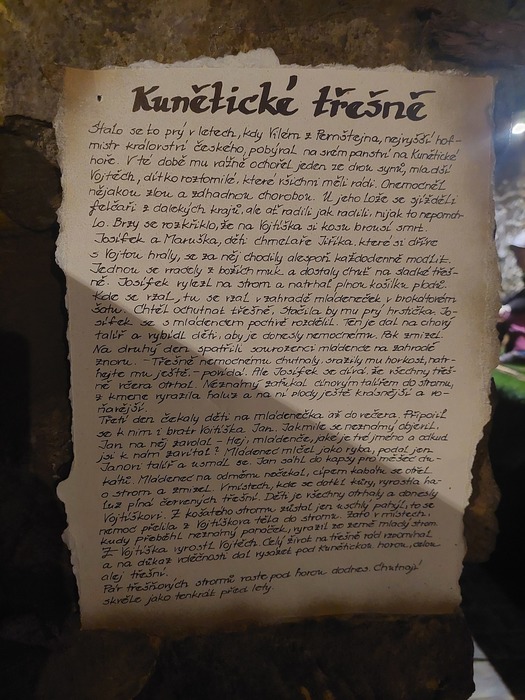 Kunětické třešně
Stalo se to prý v letech, kdy Vilém z Pernštejna, nejvyšší hof-
mistr království českého, pobýval na svém panství na Kunětické
hoře. V té době mu vážně ochořel jeden ze dvou synů, mladší
Vojtěch, dítko roztomilé, které všichni měli rádi. Onemocněl
nějakou zlou a záhadnou chorobou. U jeho lože se sjížděli
felčaři z dalekých krajů, ale ať radili jak radili, nijak to nepomoh-
lo. Brzy se rozkřiklo, že na Vojtíška si kosu brousí smrt.
Josífek a Maruška, děti chmelaře Jiříka, které si dříve
s Vojtou hrály, se za něj chodily alespoň každodenně modlit.
Jednou se vracely z božích muk a dostaly chuť na sladké třeš-
ně. Josífek vylezl na strom a natrhal plnou košilku plodů.
Kde se vzal, tu se vzal v zahradě mládeneček v brokátovém
šatu. Chtěl ochutnat třešně. Stačila by mu prý hrstička. Jo-
sífek se s mládencem poctivě rozdělil. Ten je dal na cínový
talíř a vybídl děti, aby je donesly nemocnému. Pak zmizel.
Na druhý den spatřili sourozenci mládence na zahradě
znovu. - Třešně nemocnému chutnaly, srazily mu horkost, natr-
hejte mu ještě. - povídal. Ale Josífek se dívá, že všechny třeš-
ně včera otrhal. Neznámý zaťukal cínovým talířem do stromu,
z kmene vyrazila haluz a na ní plody ještě krásnější a vo-
ňavější.
Třetí den čekaly děti na mládenečka až do večera. Připojil
se k nim i bratr Vojtíška Jan. Jakmile se neznámý objevil,
Jan na něj zavolal - Hej, mládenče, jaké je tvé jméno a odkud
jsi k nám zavítal? Mládenec mlčel jako ryba, podal jen
Janovi talíř a usmál se. Jan sáhl do kapsy pro měšec du-
kátů. Mládenec na odměnu nečekal, cípem kabátu se otřel
o strom a zmizel. V místech, kde se dotkl kůry, vyrostla ha-
luz plná červených třešní. Děti je všechny otrhaly a donesly
Vojtíškovi. Z košatého stromu zůstal jen uschlý pahýl, to se
nemoc přelila z Vojtíškova těla do stromu. Zato v místech,
kudy přeběhl neznámý panáček, vyrazil ze země mladý strom.
Z Vojtíška vyrostl Vojtěch. Celý život na třešně rád vzpomínal
a na důkaz vděčnosti dal vysázet pod Kunětickou horou, celou
alej třešní.
Pár třešňových stromů roste pod horou dodnes. Chutnají
skvěle jako tenkrát před lety.